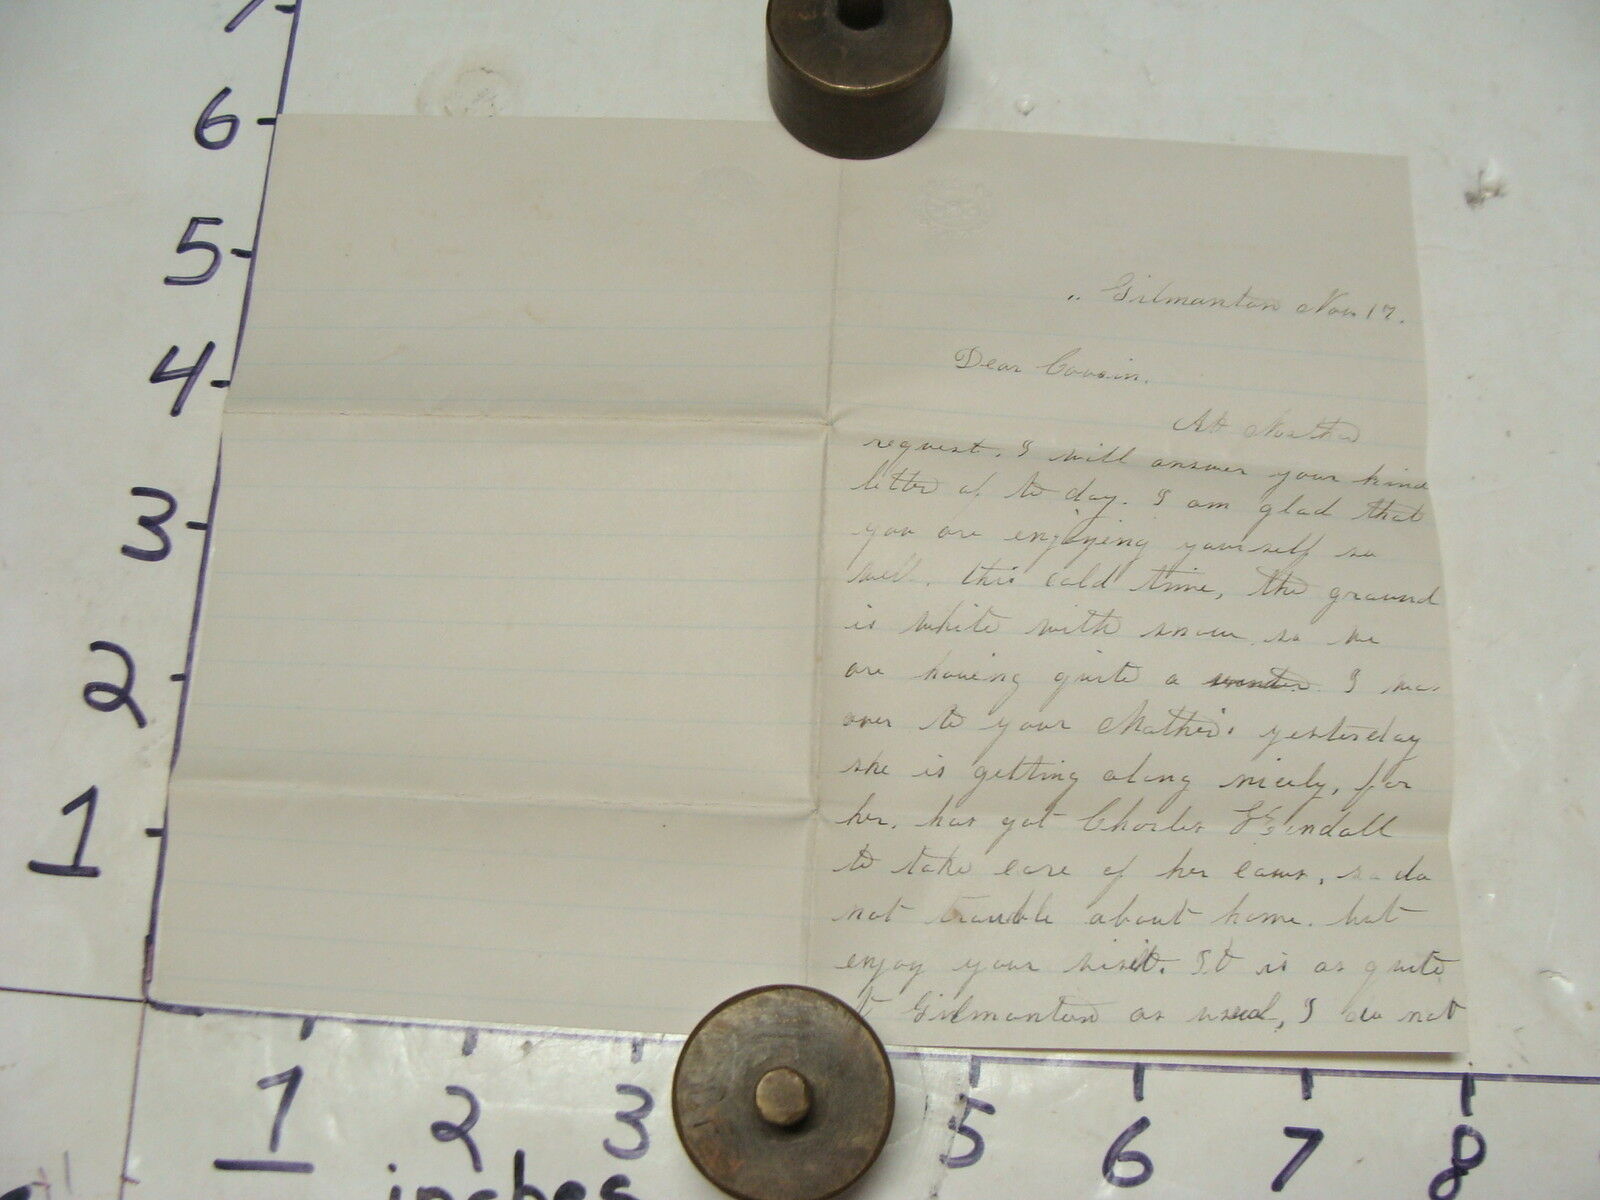 7
6
5
4
3
2
1
Gilmanton Nov 17.
Dear Cousin.
At Mother
request. I will answer your kind
letter of to day. I am glad that
you are enjoying yourself so
well. this cold time, the ground
is white with snow so we
are having quite a winter I was
over to your Mother. yesterday
she is getting along nicely, for
her. has got Charles Kendall
to take care of her cows, so do
not trouble about home. but
enjoy your visit. It is as quite
Gilmanton as usual, I do not
1 2 3 5 6 7 8
inches